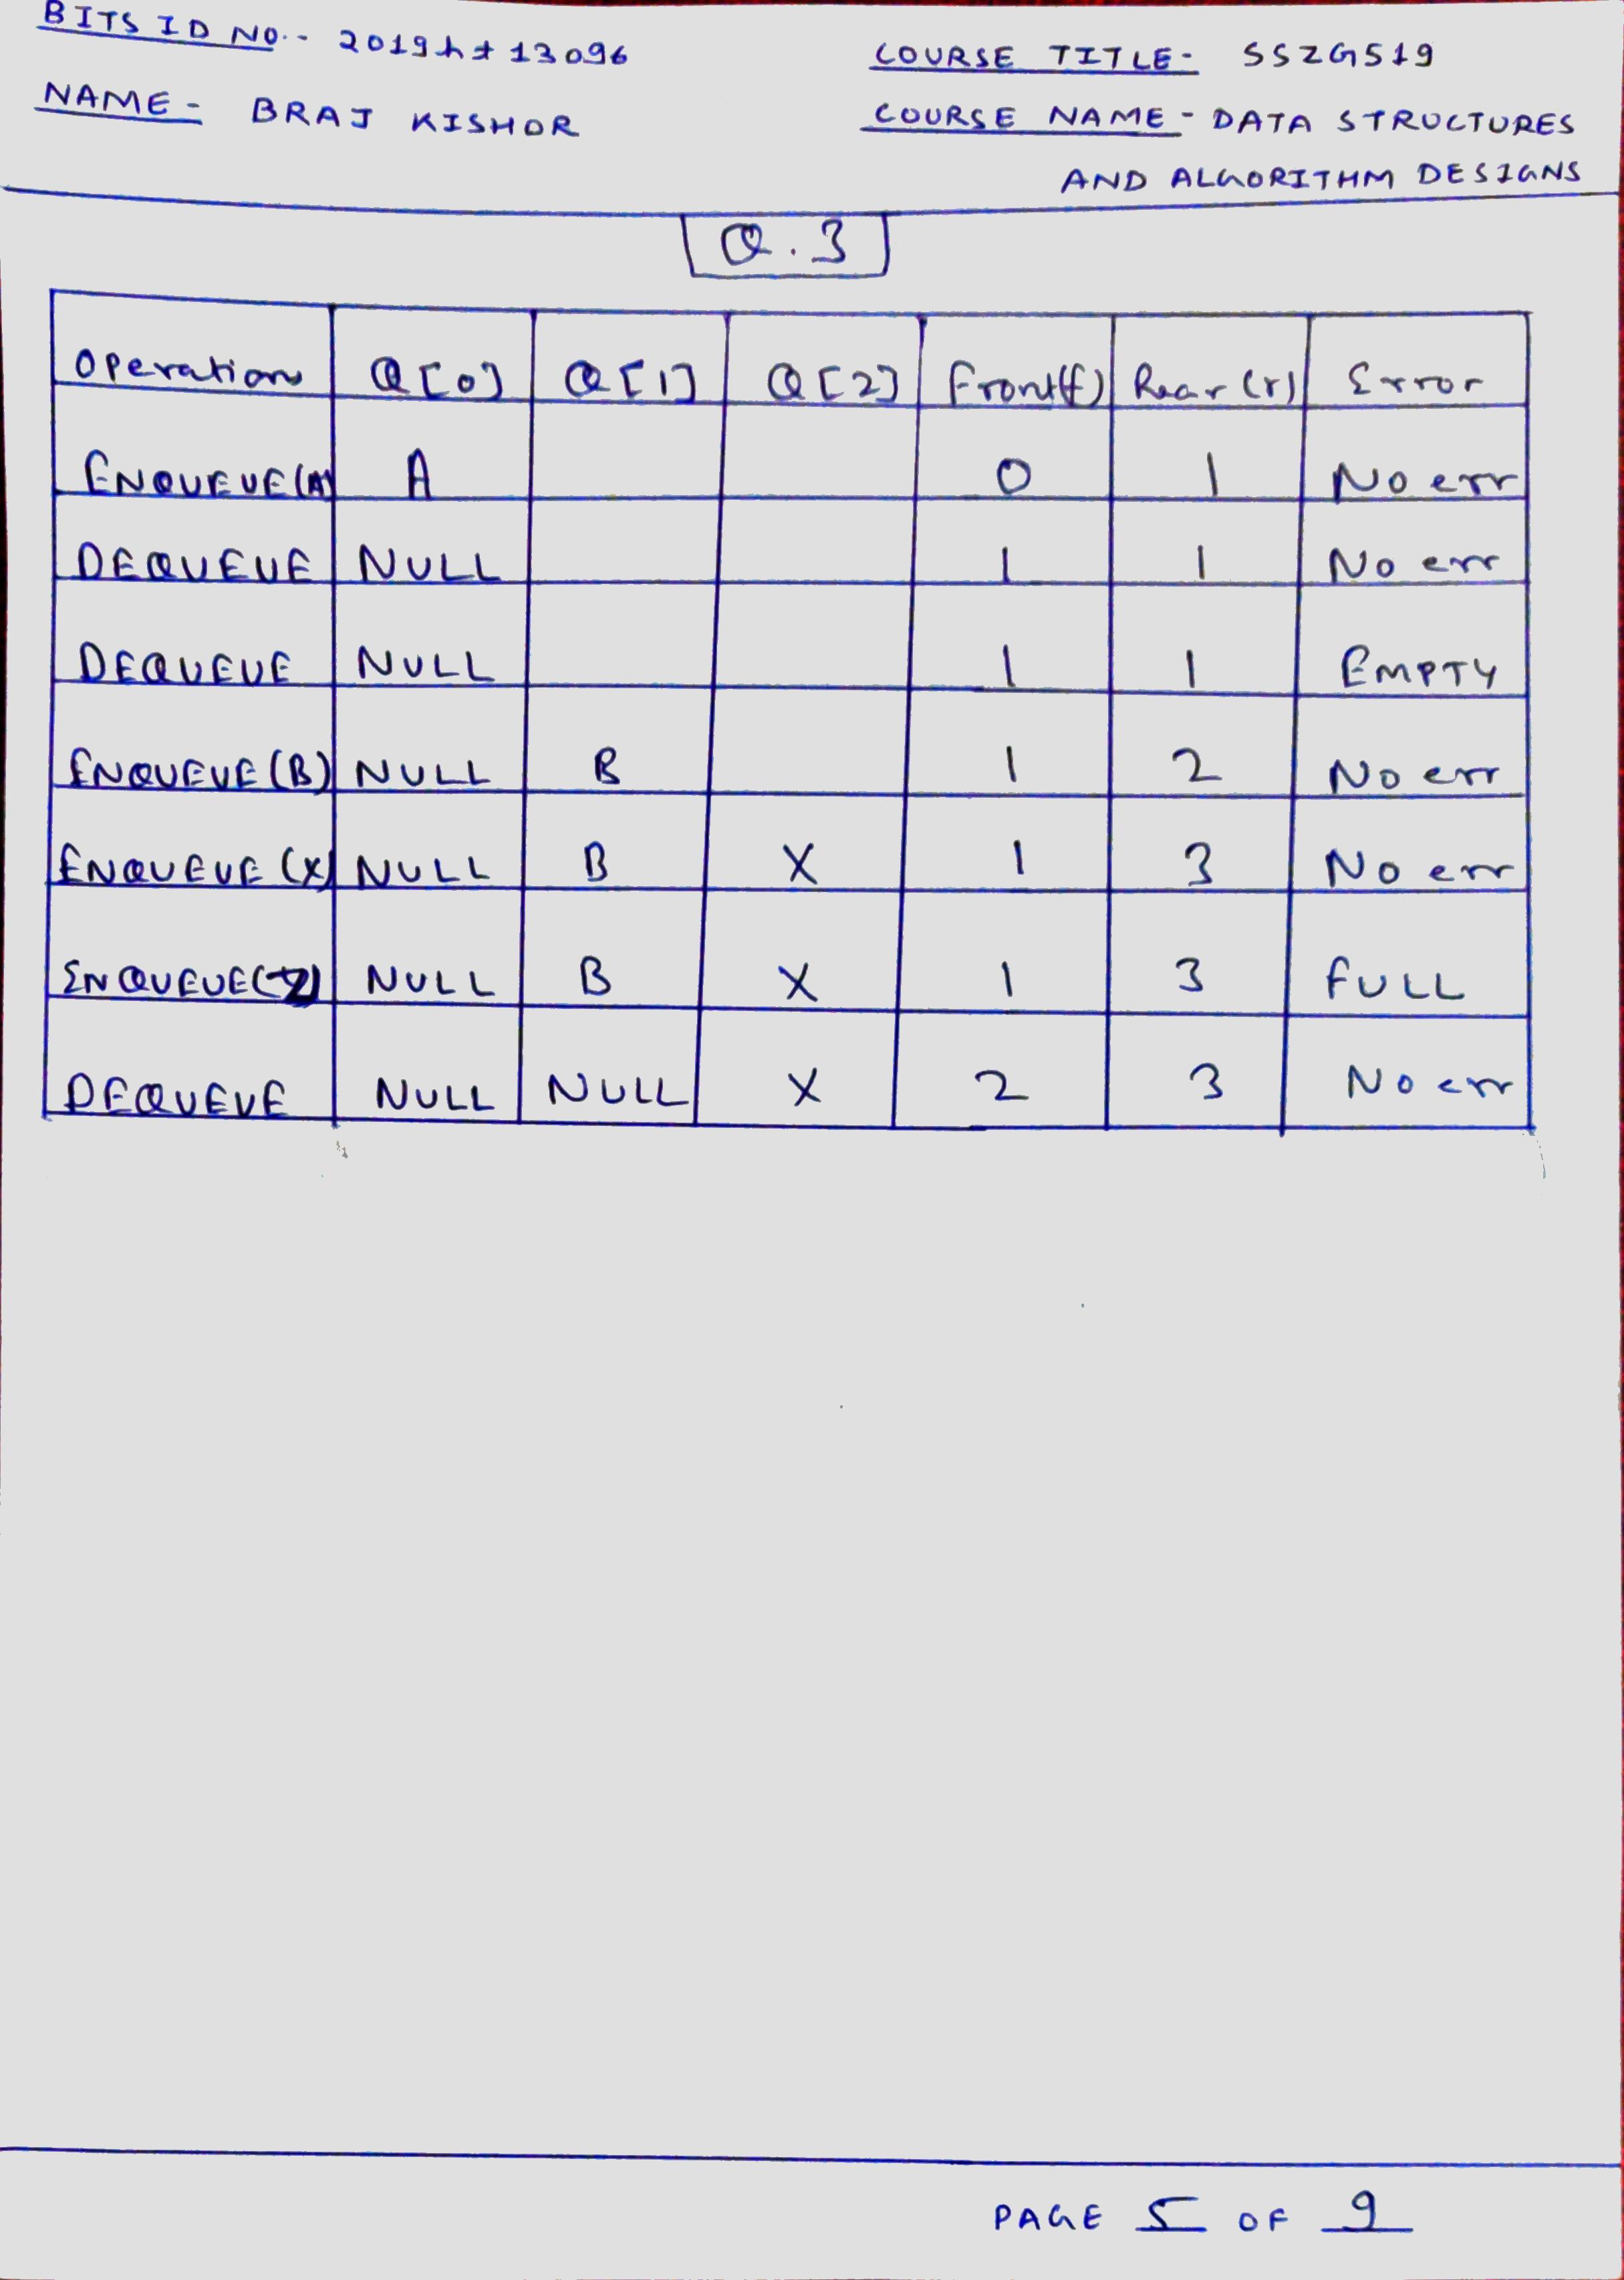 BITS ID NO.- 2019ht13096
COURSE TITLE- SSZG519
NAME- BRAJ KISHOR
COURSE NAME- DATA STRUCTURES
AND ALGORITHM DESIGNS
Q.3
Operations Q[0] Q[1] Q[2] Front(f) Rear(r) Error
ENQUEUE(A) A 0 1 No err
DEQUEUE NULL 1 1 No err
DEQUEUE NULL 1 1 EMPTY
ENQUEUE(B) NULL B 1 2 No err
ENQUEUE(X) NULL B X 1 3 No err
ENQUEUE(Z) NULL B X 1 3 FULL
DEQUEUE NULL NULL X 2 3 No err
PAGE 5 OF 9